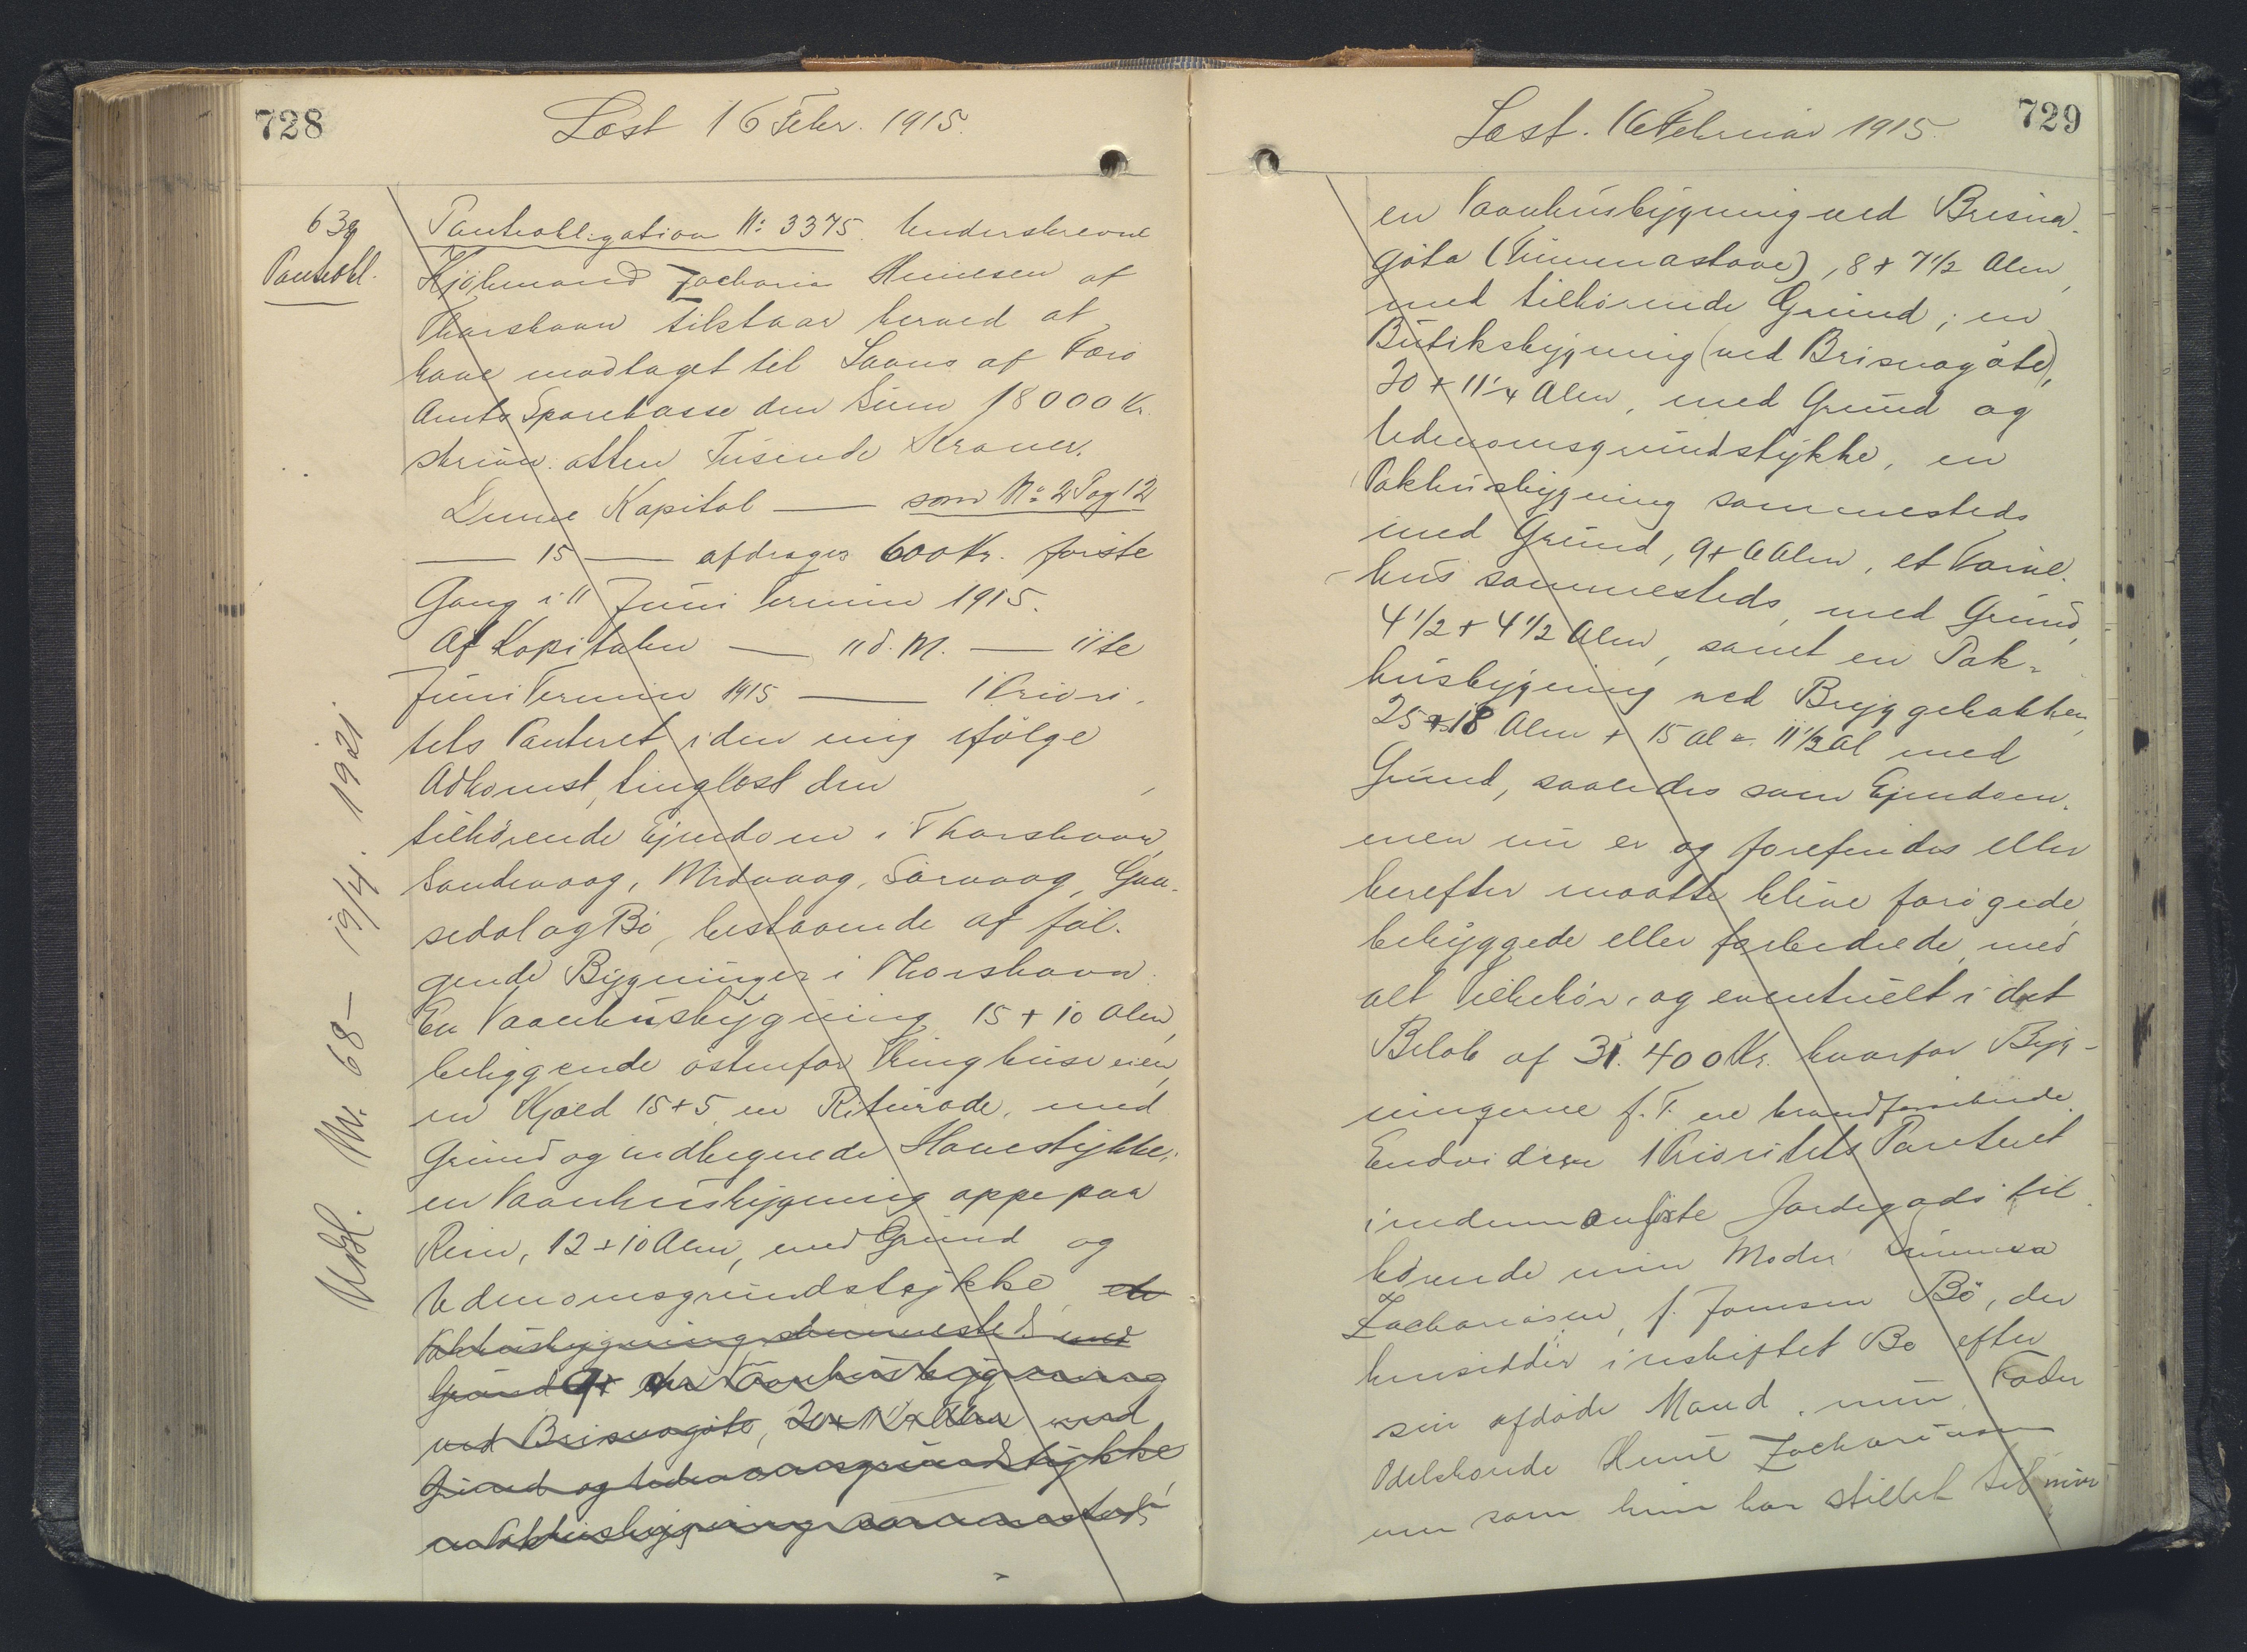 728
Læst 16 Febr. 1915.
639
Pantobl.
Pantobligation No: 3375. Underskrevne
Kjøbmand Zacharia Heinesen af
Thorshavn tilstaar herved at
have modtaget til Laans af Færø
Amts Sparekasse den Sum 18000 Kr.
skriver atten Tusinde Kroner.
Denne Kapital — som No: 2 Pag 12
— 15 — afdrages 600 Kr. første
Gang i 11 Juni Termin 1915.
Af Kapitalen — 11 d. M. — 11te
Juni Termin 1915 — 1 Priori-
tets Panteret i den mig ifølge
Adkomst, tinglæst den ,
tilhørende Ejendom i Thorshavn,
Sandevaag, Midvaag, Sørvaag, Gaa-
sedal og Bø, bestaaende af føl-
gende Bygninger i Thorshavn.
En Vaanhusbygning 15 + 10 Alen,
beliggende østenfor Kinghuseien,
en Kjæld 15 + 5, en Riturode, med
Grund og indhegnede Havestykke;
en Vaanhusbygning oppe paa
Rein, 12 + 10 Alen, med Grund og
Udenomsgrundstykke, et
Pakhusbygning sammested med
Grund 9+ en Vaanhusbygning
ved Brisnagøte, 20 + 11 1/4 Alen med
Grund og Udenomsgrundstykke
en Pakhusbygning sammesteds
Udsl. Nr. 68 – 19/4. 1921.
729
Læst. 16 Februar 1915.
en Vaanhusbygning ved Brisna-
gøta (Kunnastove), 8 + 7 1/2 Alen,
med tilhørende Grund; en
Butiksbygning (ved Brisnagøte),
20 + 11 1/4 Alen, med Grund og
Udenomsgrundstykke, en
Pakhusbygning sammesteds
med Grund, 9 + 6 Alen, et
hus sammesteds, med Grund,
4 1/2 + 4 1/2 Alen, samt en Pak-
husbygning ved Bryggebakken,
25 + 18 Alen + 15 Al = 11 1/2 Al med
Grund, saaledes som Ejendom-
men nu er og forefindes eller
herefter maatte blive forøgede,
bebyggede eller forbedrede, med
alt Tilbehør, og eventuelt i det
Beløb af 31.400 Kr. hvorfor Byg-
ningerne f. T. ere brandforsikrede.
Endvidere 1 Prioritets Panteret
i nedenanførte Jordegods til-
hørende min Moder Sunneva
Zachariasen, f. Joensen Bø, der
hensidder i uskiftet Bo efter
sin afdøde Mand, min Fader
Odelsbonde Heine Zachariasen
men som hun har stillet til min